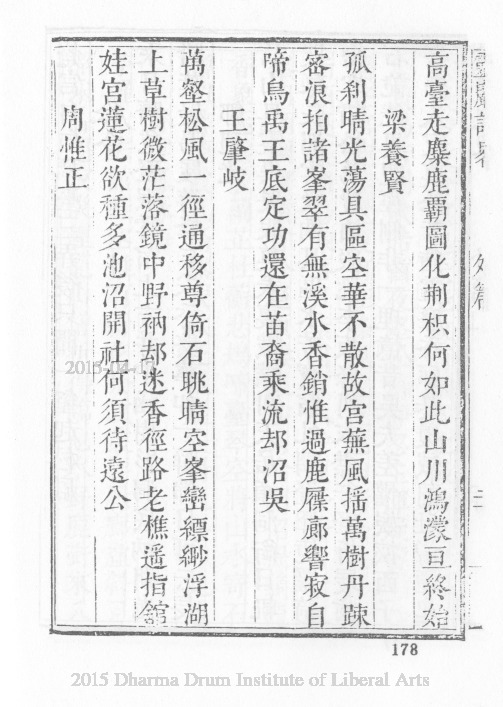 高臺走麋鹿覇圖化荆枳何如此山川鴻濛亘終始
梁養賢
孤刹晴光蕩具區空華不散故宫蕪風揺萬樹丹踈
宻浪拍諸峯翠有無溪水香銷惟過鹿屧廊響寂自
啼烏禹王底定功還在苗裔乘流却沼吳
王肇岐
萬壑松風一徑通移尊倚石眺晴空峯巒縹緲浮湖
上草樹微茫落鏡中野衲却迷香徑路老樵遥指舘
娃宮蓮花欲種多池沼開社何須待遠公
周惟正
外篇
178
2015-04-17
2015 Dharma Drum Institute of Liberal Arts